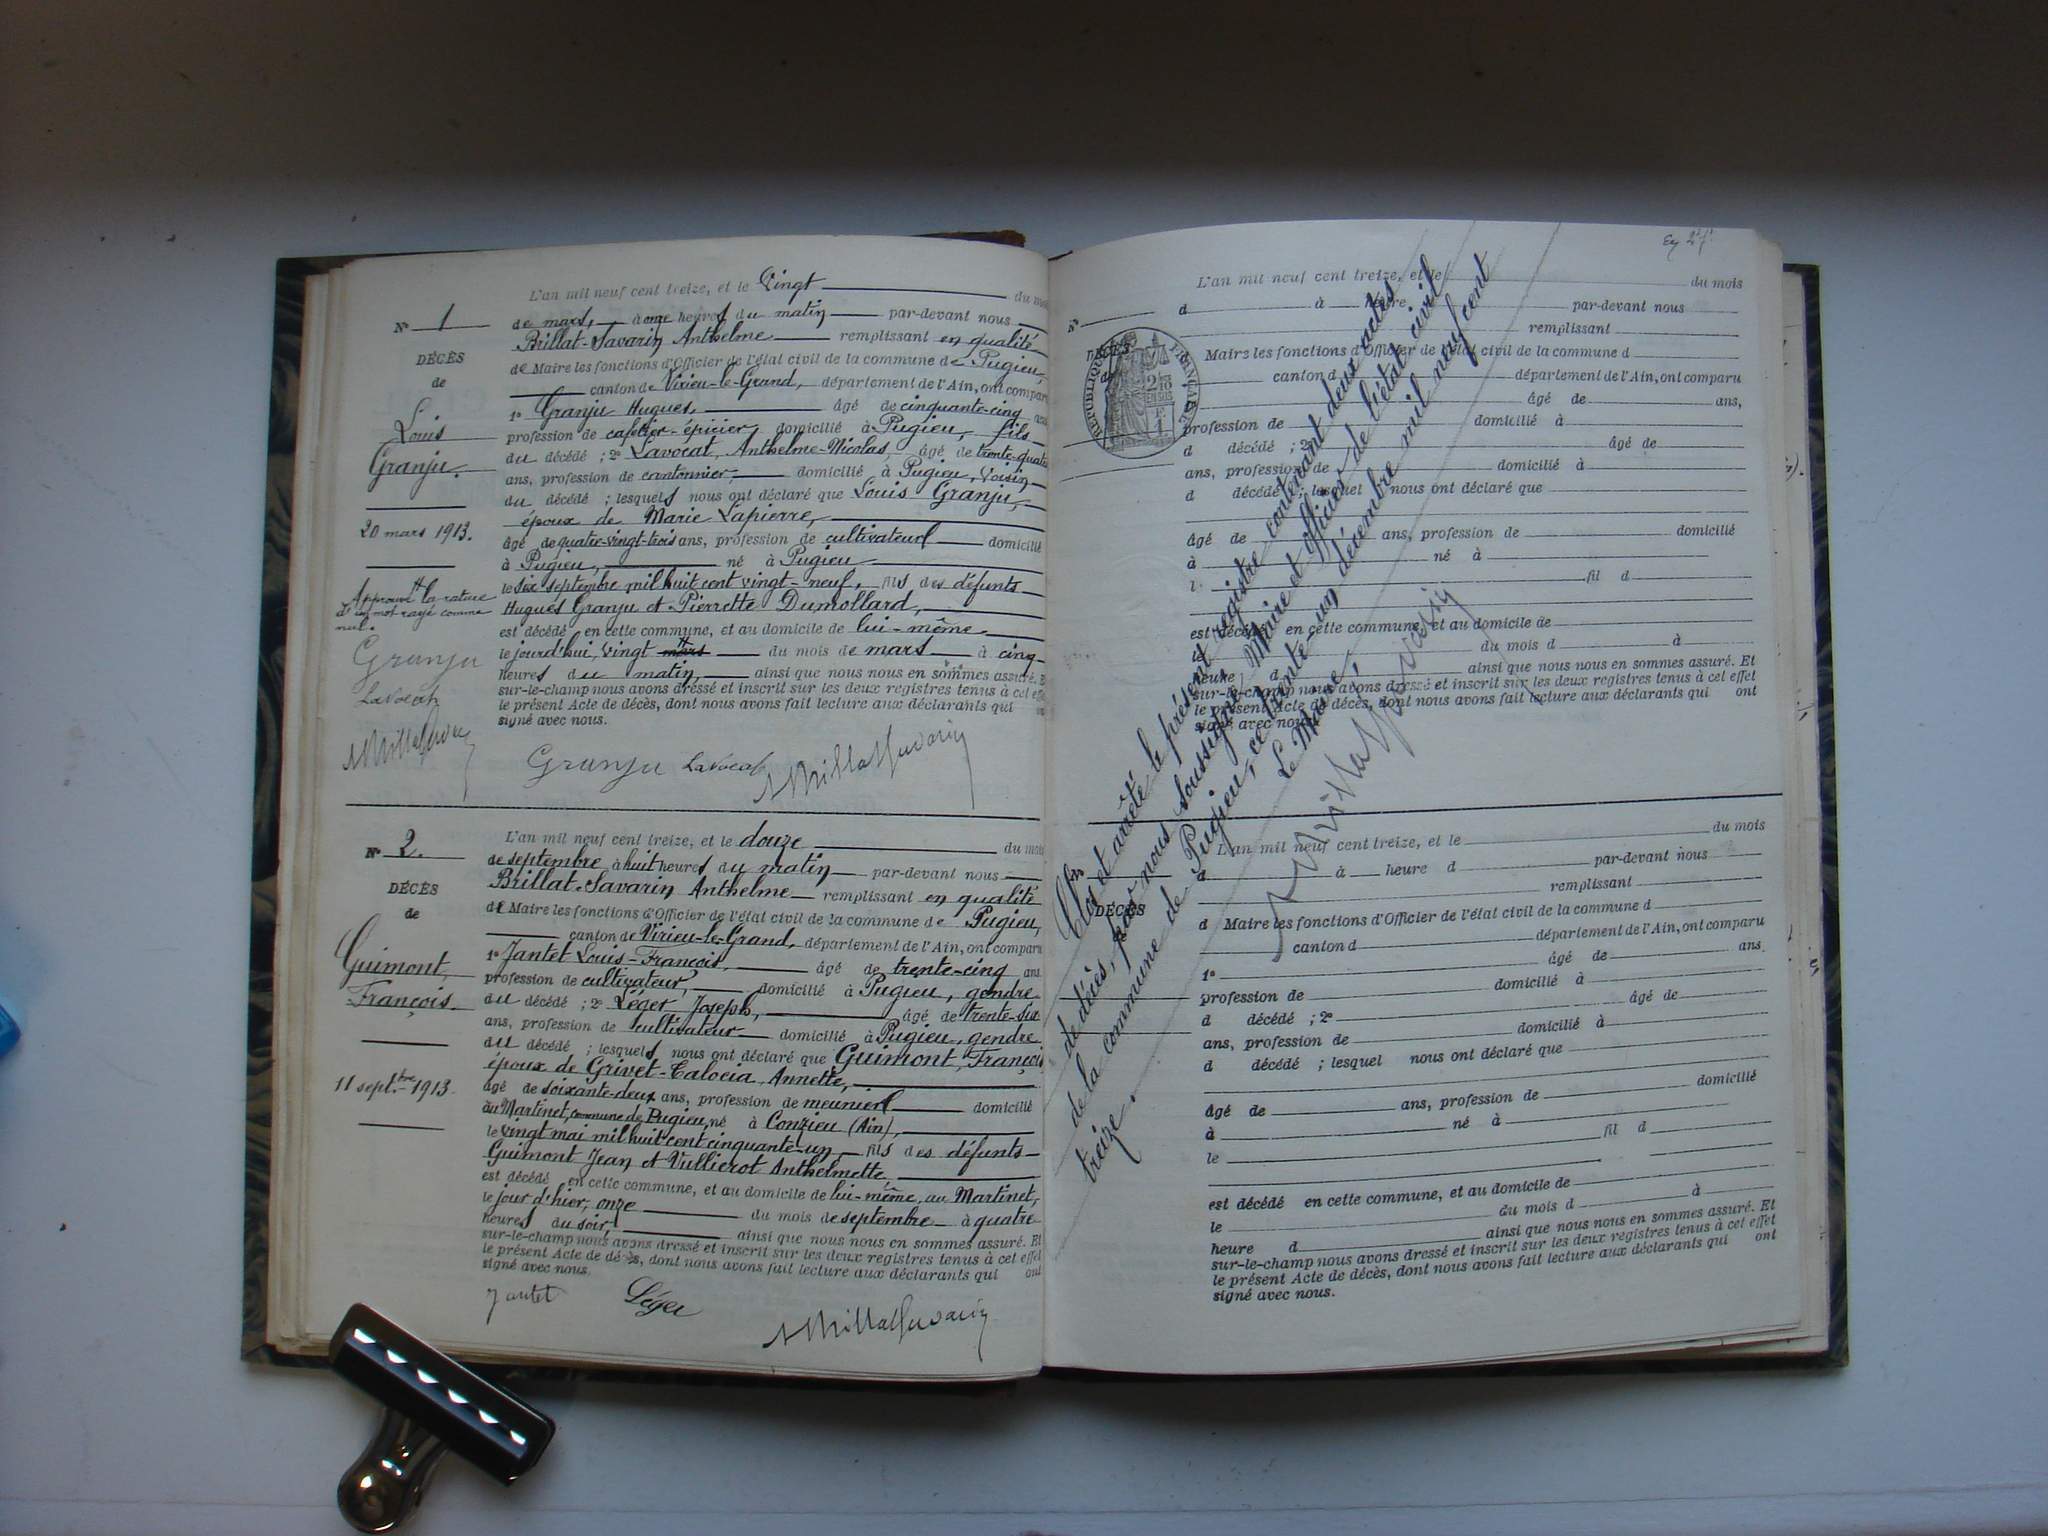 L'an mil neuf cent treize, et le Vingt du mois
N° 1
de mars, à onze heures du matin par-devant nous
Brillat-Savarin Anthelme remplissant en qualité
DÉCÈS
de Maire les fonctions d'Officier de l'état civil de la commune de Pugieu,
de
canton de Virieu-le-Grand, département de l'Ain, ont comparu
1° Granju Hugues, âgé de cinquante-cinq ans
Louis
profession de cafetier-épicier domicilié à Pugieu, fils
Granju.
du décédé ; 2° Lavocat, Anthelme-Nicolas, âgé de trente-quatre
ans, profession de cantonnier, domicilié à Pugieu, voisin
du décédé ; lesquels nous ont déclaré que Louis Granju,
époux de Marie Lapierre,
20 mars 1913.
âgé de quatre-vingt-trois ans, profession de cultivateur domicilié
à Pugieu, né à Pugieu
le six septembre mil huit cent vingt-neuf, fils des défunts
Approuvé la rature
d'un mot rayé comme
nul.
Hugues Granju et Pierrette Dumollard,
est décédé en cette commune, et au domicile de lui-même
le jourd'hui, vingt mars du mois de mars à cinq
Granju
heures du matin, ainsi que nous nous en sommes assuré. Et
sur-le-champ nous avons dressé et inscrit sur les deux registres tenus à cet effet
Lavocat
le présent Acte de décès, dont nous avons fait lecture aux déclarants qui
signé avec nous.
ABrillatSavarin
Granju Lavocat ABrillatSavarin
L'an mil neuf cent treize, et le douze du mois
N° 2.
de septembre à huit heures du matin par-devant nous
Brillat-Savarin Anthelme remplissant en qualité
DÉCÈS
de Maire les fonctions d'Officier de l'état civil de la commune de Pugieu,
de
canton de Virieu-le-Grand, département de l'Ain, ont comparu
Guimont,
1° Jantet Louis-François, âgé de trente-cinq ans
François.
profession de cultivateur, domicilié à Pugieu, gendre
du décédé ; 2° Léger Joseph, âgé de trente-six
ans, profession de cultivateur domicilié à Pugieu, gendre
du décédé ; lesquels nous ont déclaré que Guimont, François
époux de Grivet-Talocia, Annette,
11 sept.bre 1913.
âgé de soixante-deux ans, profession de meunier domicilié
au Martinet, commune de Pugieu, né à Conzieu (Ain),
le vingt mai mil huit cent cinquante-un, fils des défunts
Guimont Jean et Vullierot Anthelmette,
est décédé en cette commune, et au domicile de lui-même, au Martinet,
le jour d'hier, onze du mois de septembre à quatre
heures du soir, ainsi que nous nous en sommes assuré. Et
sur-le-champ nous avons dressé et inscrit sur les deux registres tenus à cet effet
le présent Acte de décès, dont nous avons fait lecture aux déclarants qui ont
signé avec nous.
Jantet Léger ABrillatSavarin
L'an mil neuf cent treize, et le du mois
N° d à heure par-devant nous
remplissant
DÉCÈS
Maire les fonctions d'Officier de l'état civil de la commune d
de
canton d département de l'Ain, ont comparu
âgé de ans,
profession de domicilié à
d décédé ; 2° âgé de
ans, profession de domicilié à
d décédé ; lesquel nous ont déclaré que
âgé de ans, profession de domicilié
à né à
l fil d
est décédé en cette commune, et au domicile de
le du mois d à
heure d ainsi que nous nous en sommes assuré. Et
sur-le-champ nous avons dressé et inscrit sur les deux registres tenus à cet effet
le présent Acte de décès, dont nous avons fait lecture aux déclarants qui ont
signé avec nous.
RÉPUBLIQUE FRANÇAISE
Clos et arrêté le présent registre contenant deux actes
de décès, par nous soussigné, Maire et officier de l'état civil
de la commune de Pugieu, ce trente-un décembre mil neuf cent
treize.
Le Maire,
ABrillatSavarin
L'an mil neuf cent treize, et le du mois
d à heure d par-devant nous
remplissant
DÉCÈS
d Maire les fonctions d'Officier de l'état civil de la commune d
canton d département de l'Ain, ont comparu
1° âgé de ans
profession de domicilié à
d décédé ; 2° âgé de
ans, profession de domicilié à
d décédé ; lesquel nous ont déclaré que
âgé de ans, profession de domicilié
à né à
le fil d
est décédé en cette commune, et au domicile de
le du mois d à
heure d ainsi que nous nous en sommes assuré. Et
sur-le-champ nous avons dressé et inscrit sur les deux registres tenus à cet effet
le présent Acte de décès, dont nous avons fait lecture aux déclarants qui ont
signé avec nous.